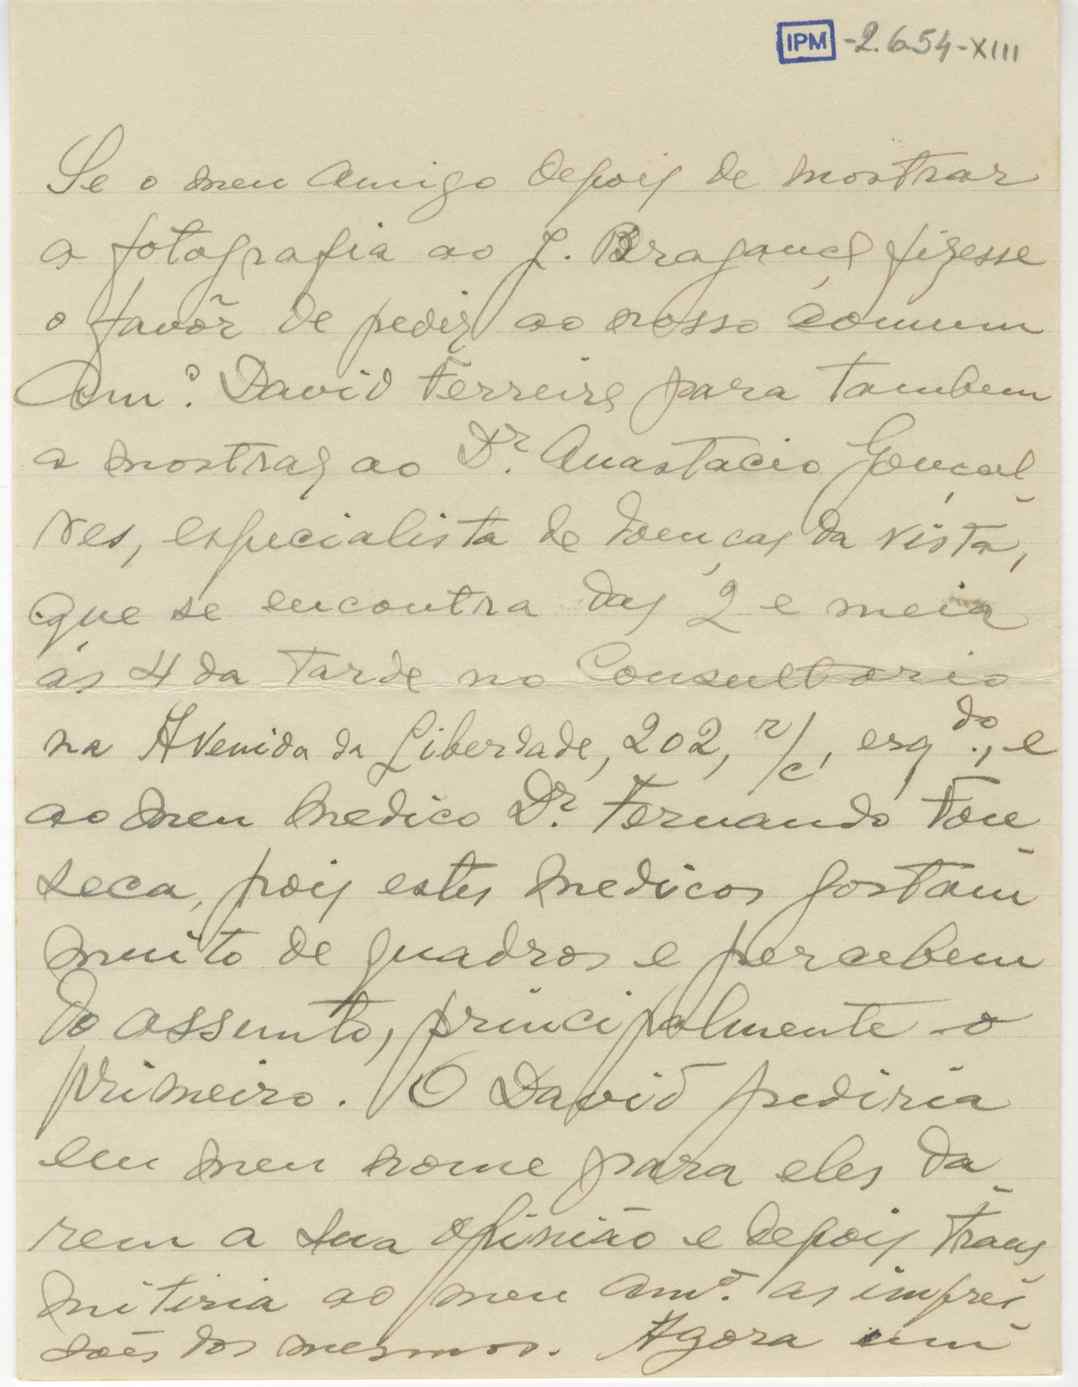 IPM -2.654-XIII
Se o meu amigo depois de mostrar
a fotografia ao J. Bragança fizesse
o favôr de pedir ao nosso comum
Am.º David Ferreira para tambem
a mostrar ao Dr. Anastacio Gonçal
ves, especialista de doenças da vista,
que se encontra das 2 e meia
ás 4 da tarde no Consultorio
na Avenida da Liberdade, 202, r/c, esq.do, e
ao meu medico Dr. Fernando Fon
seca, pois estes medicos gostam
muito de quadros e percebem
do assunto, principalmente o
primeiro. O David pediria
em meu nome para eles da
rem a sua opinião e depois trans
mitiria ao meu Am.º as impres
sões dos mesmos. Agora um